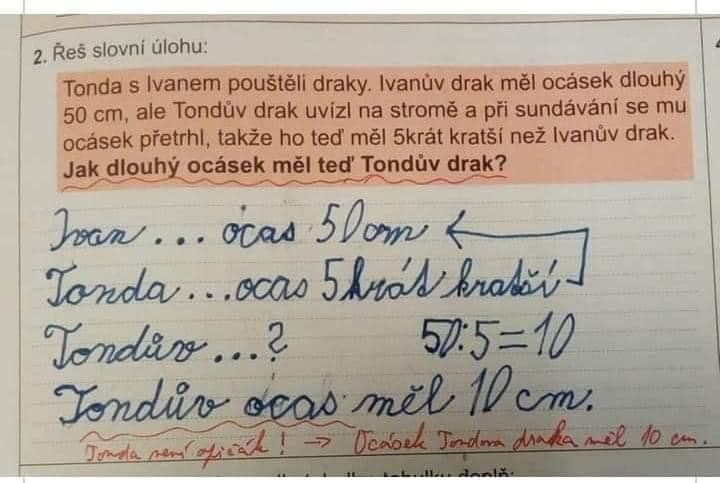 2. Řeš slovní úlohu:
Tonda s Ivanem pouštěli draky. Ivanův drak měl ocásek dlouhý
50 cm, ale Tondův drak uvízl na stromě a při sundávání se mu
ocásek přetrhl, takže ho teď měl 5krát kratší než Ivanův drak.
Jak dlouhý ocásek měl teď Tondův drak?
Ivan ... ocas 50cm
Tonda ... ocas 5krát kratší
Tondův ... ? 50:5=10
Tondův ocas měl 10 cm.
Tonda není opičák! → Ocásek Tondova draka měl 10 cm.
doplň: